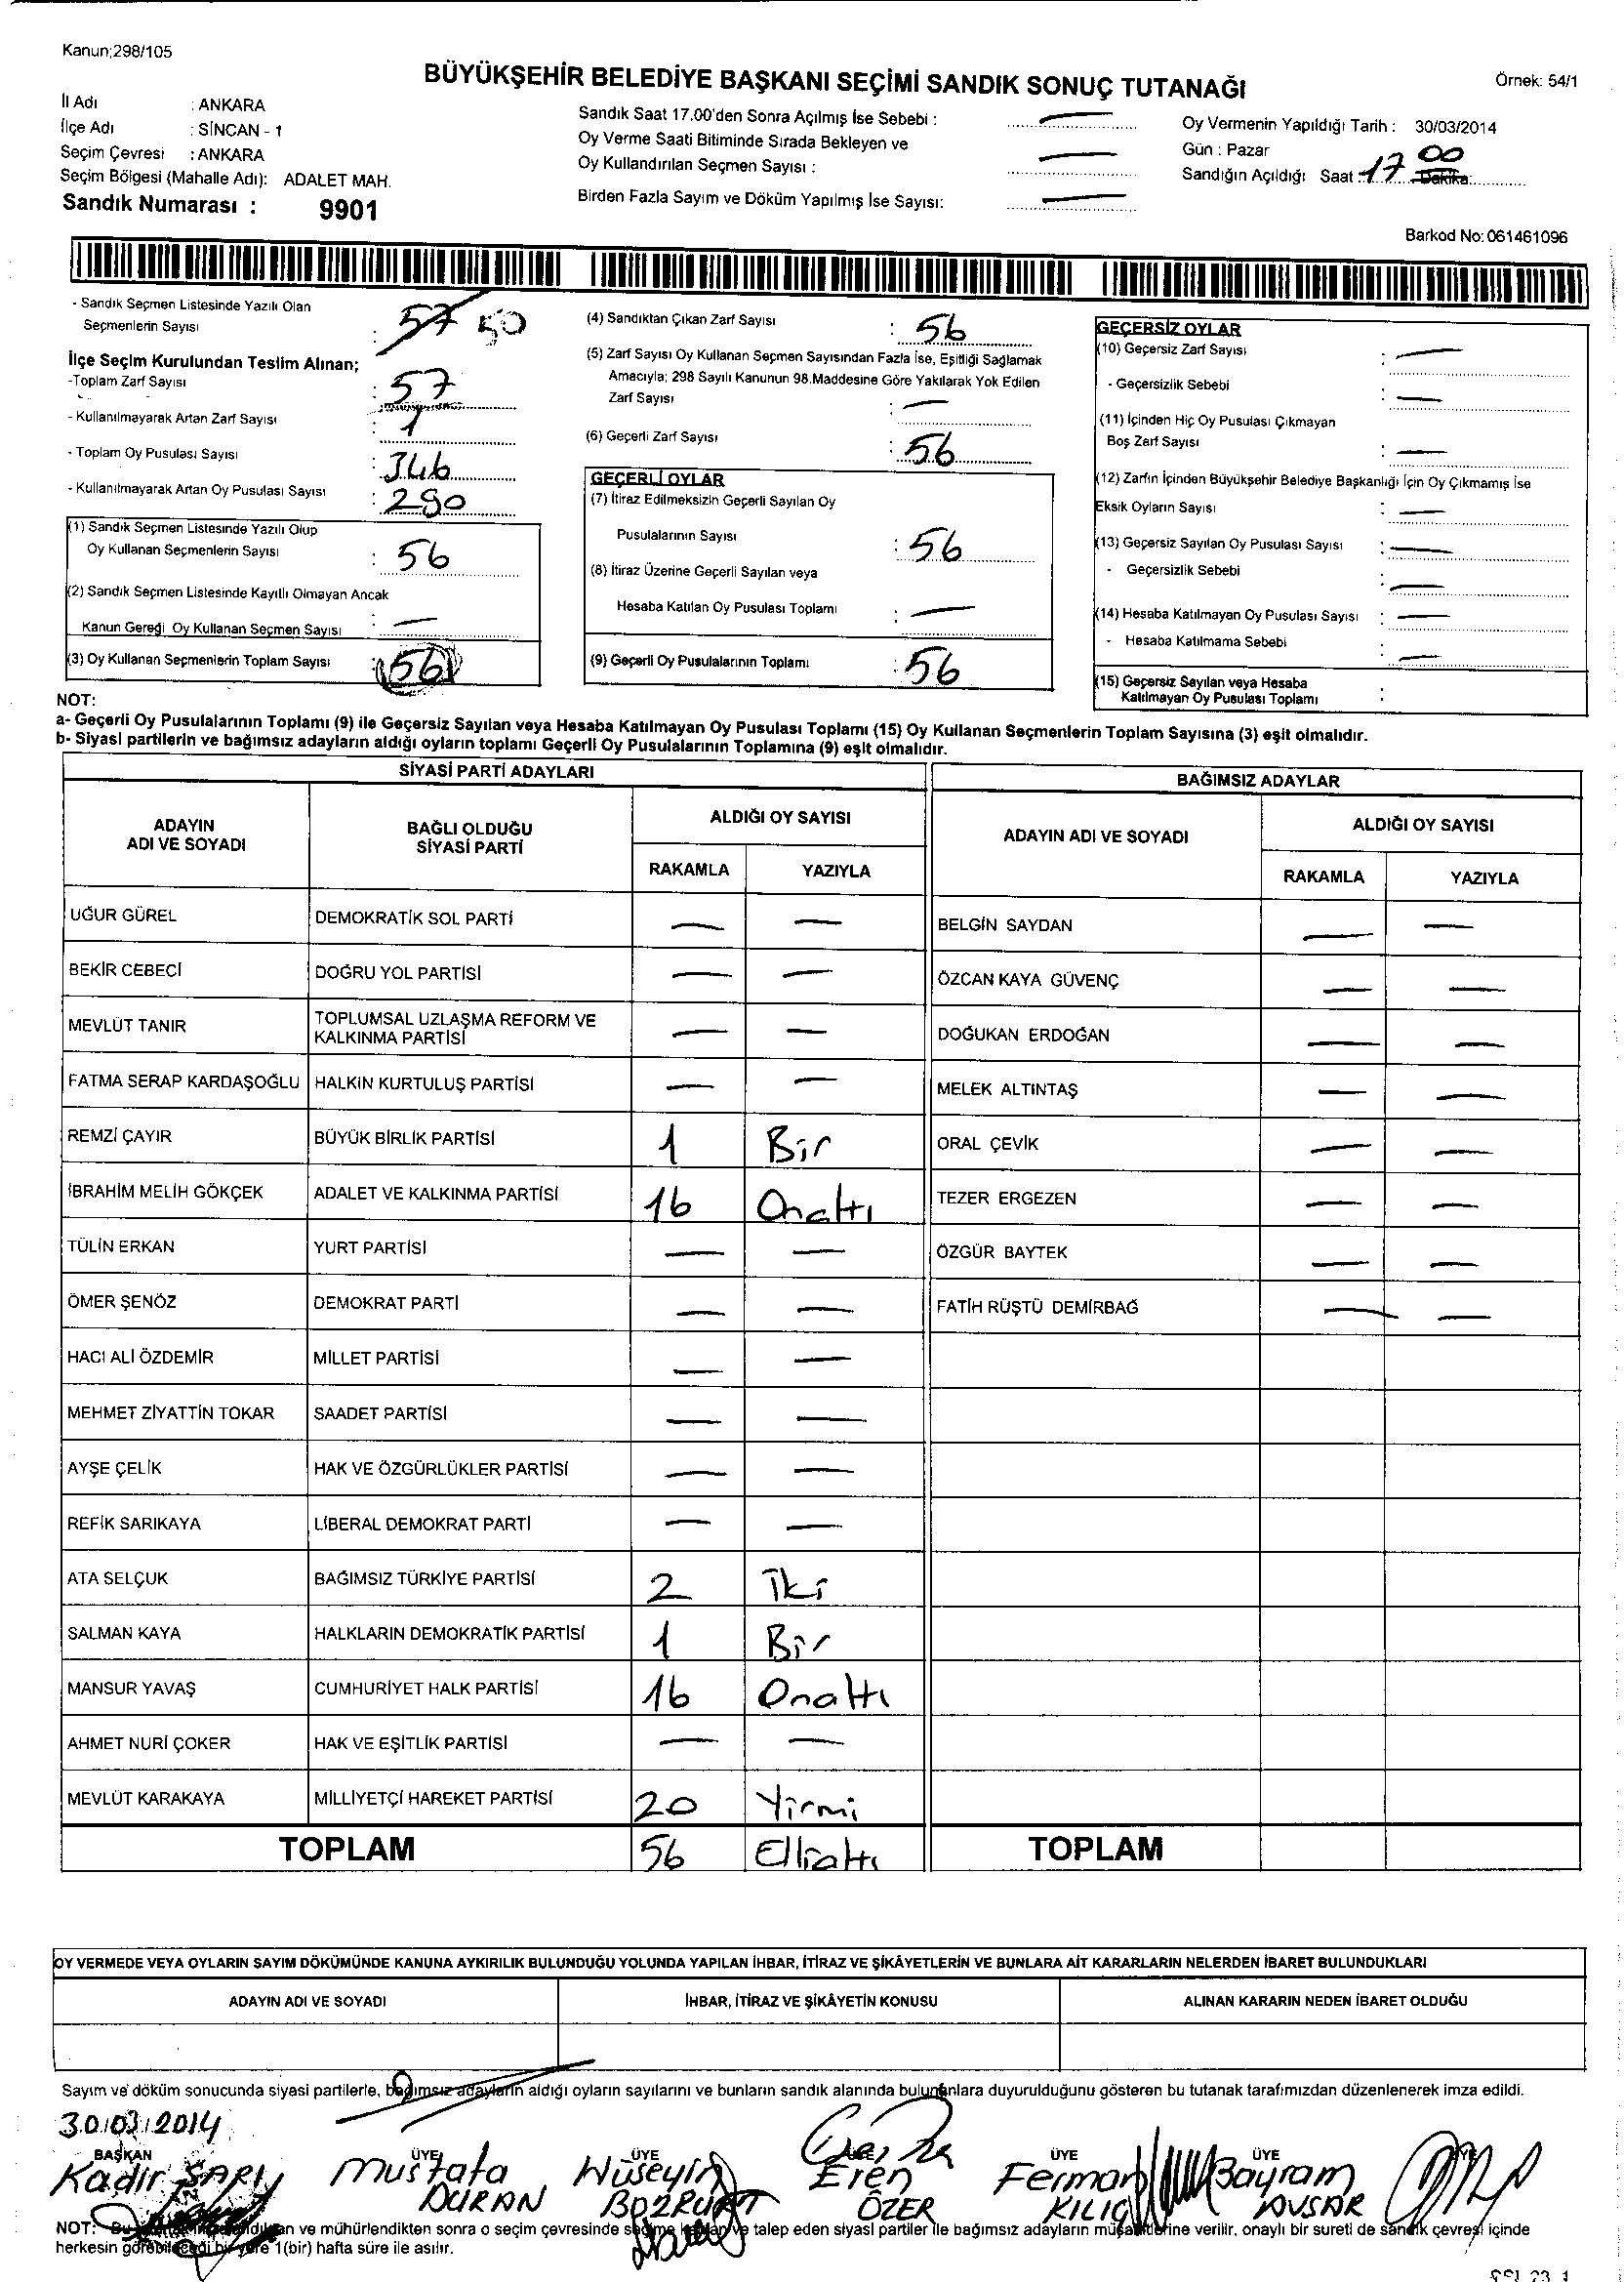 Kanun;298/105
BÜYÜKŞEHİR BELEDİYE BAŞKANI SEÇİMİ SANDIK SONUÇ TUTANAĞI
Örnek: 54/1
İl Adı : ANKARA
İlçe Adı : SİNCAN - 1
Seçim Çevresi : ANKARA
Seçim Bölgesi (Mahalle Adı): ADALET MAH.
Sandık Numarası : 9901
Sandık Saat 17.00'den Sonra Açılmış İse Sebebi : —
Oy Verme Saati Bitiminde Sırada Bekleyen ve
Oy Kullandırılan Seçmen Sayısı : —
Birden Fazla Sayım ve Döküm Yapılmış İse Sayısı: —
Oy Vermenin Yapıldığı Tarih : 30/03/2014
Gün : Pazar
Sandığın Açıldığı Saat 17 00 Dakika:
Barkod No: 061461096
- Sandık Seçmen Listesinde Yazılı Olan
Seçmenlerin Sayısı : 57 50
İlçe Seçim Kurulundan Teslim Alınan;
-Toplam Zarf Sayısı : 57
- Kullanılmayarak Artan Zarf Sayısı : 1
- Toplam Oy Pusulası Sayısı : 346
- Kullanılmayarak Artan Oy Pusulası Sayısı : 290
(1) Sandık Seçmen Listesinde Yazılı Olup
Oy Kullanan Seçmenlerin Sayısı : 56
(2) Sandık Seçmen Listesinde Kayıtlı Olmayan Ancak
Kanun Gereği Oy Kullanan Seçmen Sayısı : —
(3) Oy Kullanan Seçmenlerin Toplam Sayısı : 56
(4) Sandıktan Çıkan Zarf Sayısı : 56
(5) Zarf Sayısı Oy Kullanan Seçmen Sayısından Fazla İse, Eşitliği Sağlamak
Amacıyla; 298 Sayılı Kanunun 98.Maddesine Göre Yakılarak Yok Edilen
Zarf Sayısı : —
(6) Geçerli Zarf Sayısı : 56
GEÇERLİ OYLAR
(7) İtiraz Edilmeksizin Geçerli Sayılan Oy
Pusulalarının Sayısı : 56
(8) İtiraz Üzerine Geçerli Sayılan veya
Hesaba Katılan Oy Pusulası Toplamı : —
(9) Geçerli Oy Pusulalarının Toplamı : 56
GEÇERSİZ OYLAR
(10) Geçersiz Zarf Sayısı : —
- Geçersizlik Sebebi : —
(11) İçinden Hiç Oy Pusulası Çıkmayan
Boş Zarf Sayısı : —
(12) Zarfın İçinden Büyükşehir Belediye Başkanlığı İçin Oy Çıkmamış İse
Eksik Oyların Sayısı : —
(13) Geçersiz Sayılan Oy Pusulası Sayısı : —
- Geçersizlik Sebebi : —
(14) Hesaba Katılmayan Oy Pusulası Sayısı : —
- Hesaba Katılmama Sebebi : —
(15) Geçersiz Sayılan veya Hesaba
Katılmayan Oy Pusulası Toplamı :
NOT:
a- Geçerli Oy Pusulalarının Toplamı (9) ile Geçersiz Sayılan veya Hesaba Katılmayan Oy Pusulası Toplamı (15) Oy Kullanan Seçmenlerin Toplam Sayısına (3) eşit olmalıdır.
b- Siyasi partilerin ve bağımsız adayların aldığı oyların toplamı Geçerli Oy Pusulalarının Toplamına (9) eşit olmalıdır.
SİYASİ PARTİ ADAYLARI
ADAYIN ADI VE SOYADI
BAĞLI OLDUĞU SİYASİ PARTİ
ALDIĞI OY SAYISI
RAKAMLA YAZIYLA
UĞUR GÜREL DEMOKRATİK SOL PARTİ — —
BEKİR CEBECİ DOĞRU YOL PARTİSİ — —
MEVLÜT TANIR TOPLUMSAL UZLAŞMA REFORM VE KALKINMA PARTİSİ — —
FATMA SERAP KARDAŞOĞLU HALKIN KURTULUŞ PARTİSİ — —
REMZİ ÇAYIR BÜYÜK BİRLİK PARTİSİ 1 Bir
İBRAHİM MELİH GÖKÇEK ADALET VE KALKINMA PARTİSİ 16 Onaltı
TÜLİN ERKAN YURT PARTİSİ — —
ÖMER ŞENÖZ DEMOKRAT PARTİ — —
HACI ALİ ÖZDEMİR MİLLET PARTİSİ — —
MEHMET ZİYATTİN TOKAR SAADET PARTİSİ — —
AYŞE ÇELİK HAK VE ÖZGÜRLÜKLER PARTİSİ — —
REFİK SARIKAYA LİBERAL DEMOKRAT PARTİ — —
ATA SELÇUK BAĞIMSIZ TÜRKİYE PARTİSİ 2 İki
SALMAN KAYA HALKLARIN DEMOKRATİK PARTİSİ 1 Bir
MANSUR YAVAŞ CUMHURİYET HALK PARTİSİ 16 Onaltı
AHMET NURİ ÇOKER HAK VE EŞİTLİK PARTİSİ — —
MEVLÜT KARAKAYA MİLLİYETÇİ HAREKET PARTİSİ 20 Yirmi
TOPLAM 56 Elliatlı
BAĞIMSIZ ADAYLAR
ADAYIN ADI VE SOYADI
ALDIĞI OY SAYISI
RAKAMLA YAZIYLA
BELGİN SAYDAN — —
ÖZCAN KAYA GÜVENÇ — —
DOĞUKAN ERDOĞAN — —
MELEK ALTINTAŞ — —
ORAL ÇEVİK — —
TEZER ERGEZEN — —
ÖZGÜR BAYTEK — —
FATİH RÜŞTÜ DEMİRBAĞ — —
TOPLAM
OY VERMEDE VEYA OYLARIN SAYIM DÖKÜMÜNDE KANUNA AYKIRILIK BULUNDUĞU YOLUNDA YAPILAN İHBAR, İTİRAZ VE ŞİKÂYETLERİN VE BUNLARA AİT KARARLARIN NELERDEN İBARET BULUNDUKLARI
ADAYIN ADI VE SOYADI İHBAR, İTİRAZ VE ŞİKÂYETİN KONUSU ALINAN KARARIN NEDEN İBARET OLDUĞU
Sayım ve döküm sonucunda siyasi partilerle, bağımsız adayların aldığı oyların sayılarını ve bunların sandık alanında bulunanlara duyurulduğunu gösteren bu tutanak tarafımızdan düzenlenerek imza edildi.
30/03/2014
BAŞKAN ÜYE ÜYE ÜYE ÜYE
Kadir SARI Mustafa DURAN Hüseyin BOZKURT Eren ÖZER Ferman KILIÇ Bayram AVŞAR
NOT: ve mühürlendikten sonra o seçim çevresinde seçime katılan ve talep eden siyasi partiler ile bağımsız adayların müşahitlerine verilir, onaylı bir sureti de sandık çevresi içinde
herkesin görebileceği bir yere 1(bir) hafta süre ile asılır.